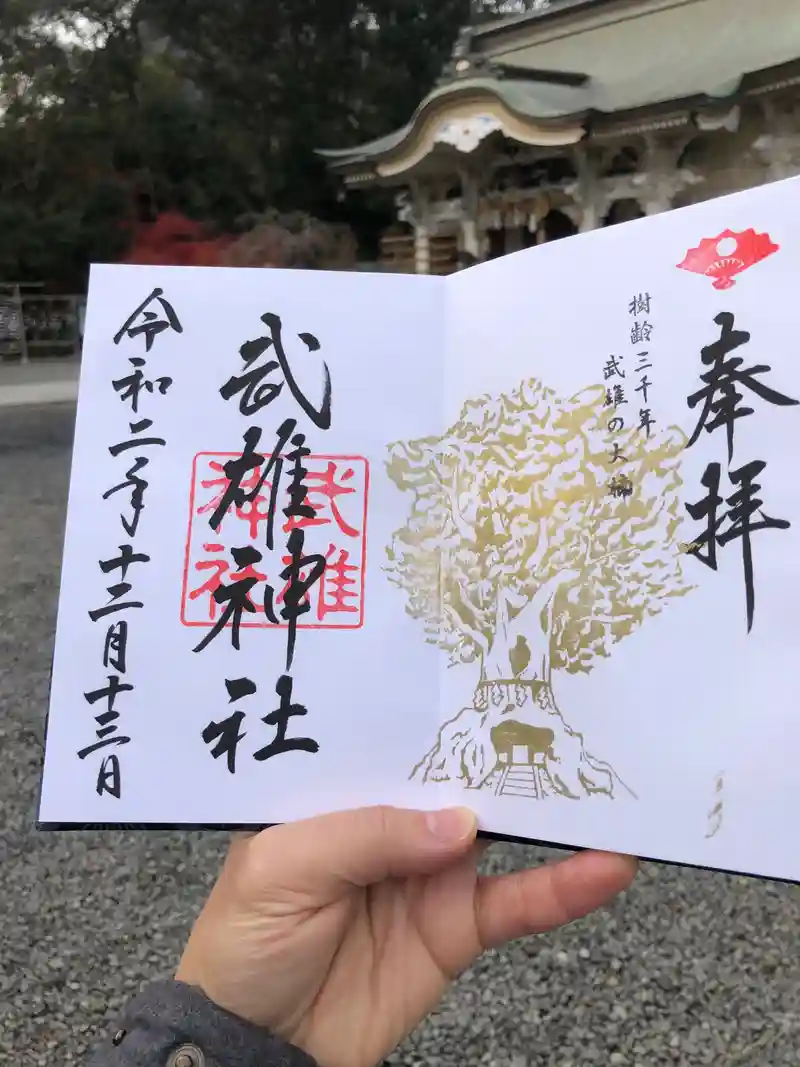 奉拝
樹齢三千年
武雄の大楠
武雄神社
武雄
神社
令和二年十二月十三日